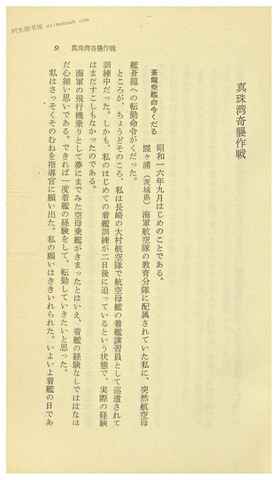 9　真珠湾奇襲作戦
真珠湾奇襲作戦
蒼龍乗艦命令くだる
昭和一六年九月はじめのことである。
霞ヶ浦（茨城県）海軍航空隊の教育分隊に配属されていた私に、突然航空母
艦蒼龍への転勤命令がくだった。
ところが、ちょうどそのころ、私は長崎の大村航空隊で航空母艦の着艦講習員として派遣されて
訓練中だった。しかも、私のはじめての着艦訓練が二日後に迫っているという状態で、実際の経験
はまだすこしもなかったのである。
海軍の飛行機乗りとして夢にまでみた空母乗艦がきまったとはいえ、着艦の経験なしでははなは
だ心細い思いである。できれば一度着艦の経験をして、転勤していきたいと思った。
私はさっそくそのむねを指導官に願い出た。私の願いはききいれられた。いよいよ着艦の日であ